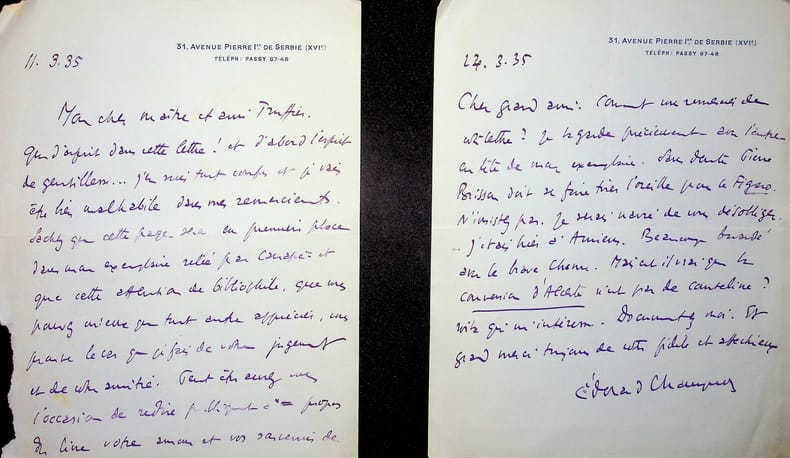 31, AVENUE PIERRE Iᵉʳ DE SERBIE (XVIᵉ)
TÉLÉPH: PASSY 67-48
11. 3. 35
Mon cher maître et ami Truffier.
Que d'esprit dans cette lettre! et d'abord l'esprit
de gentillesse... j'en suis tout confus et je vais
être bien malhabile dans mes remerciements.
Sachez que cette page sera en première place
dans mon exemplaire relié par Canape et
que cette attention de bibliophile, que vous
pouvez mieux que tout autre apprécier, vous
prouve le cas que je fais de votre jugement
et de votre amitié. Peut être aurez vous
l'occasion de redire propos
votre amour et vos souvenirs de
31, AVENUE PIERRE Iᵉʳ DE SERBIE (XVIᵉ)
TÉLÉPH: PASSY 67-48
24. 3. 35
Cher grand ami. Comment vous remercier de
votre lettre? Je la garde précieusement avec l'autre
en tête de mon exemplaire. Sans doute Pierre
Brisson doit se faire tirer l'oreille par le Figaro.
N'insistez pas. Je serais navré de vous désobliger.
... J'étais hier à Amiens. Beaucoup bavardé
avec le brave . Mais est il vrai que la
conversion d'Alceste n'est pas de ?
qui m'intéresse. Documentez moi. Et
grand merci toujours de votre fidèle et affectueux
Édouard Champion